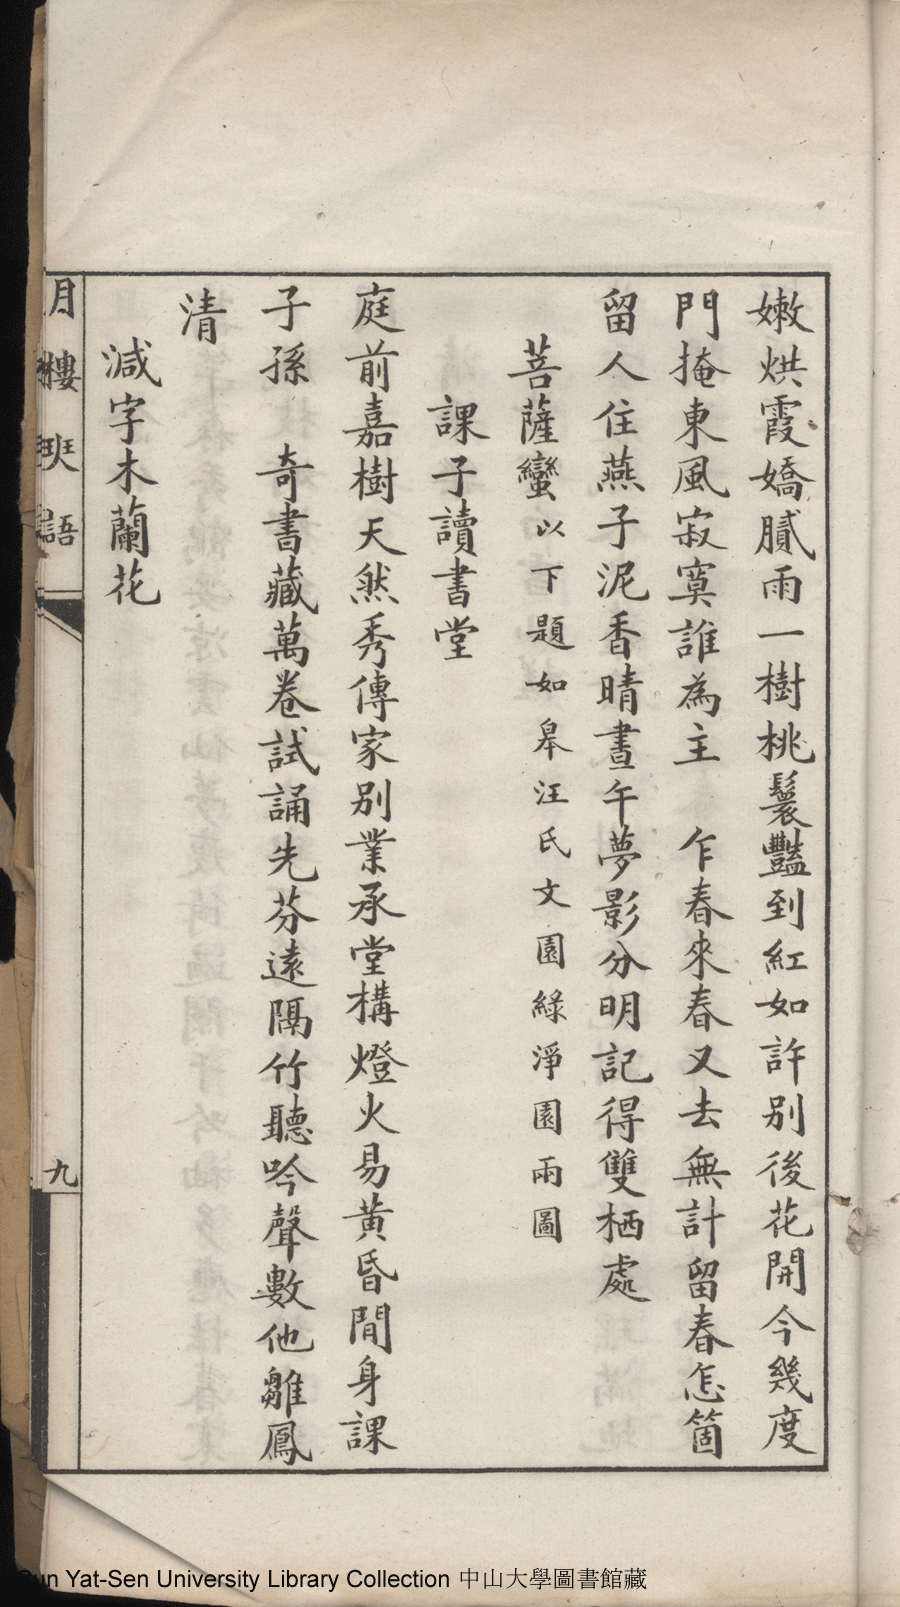 嫩烘霞嬌膩雨一樹桃鬟豔到紅如許別後花開今幾度
門掩東風寂寞誰為主　乍春來春又去無計留春怎箇
留人住燕子泥香晴晝午夢影分明記得雙栖處
菩薩蠻以下題如皋汪氏文園綠淨園兩圖
課子讀書堂
庭前嘉樹天然秀傳家別業承堂構燈火易黃昏閒身課
子孫　奇書藏萬卷試誦先芬遠隔竹聽吟聲數他雛鳳
清
減字木蘭花
月樓
語
九
Sun Yat-Sen University Library Collection 中山大學圖書館藏